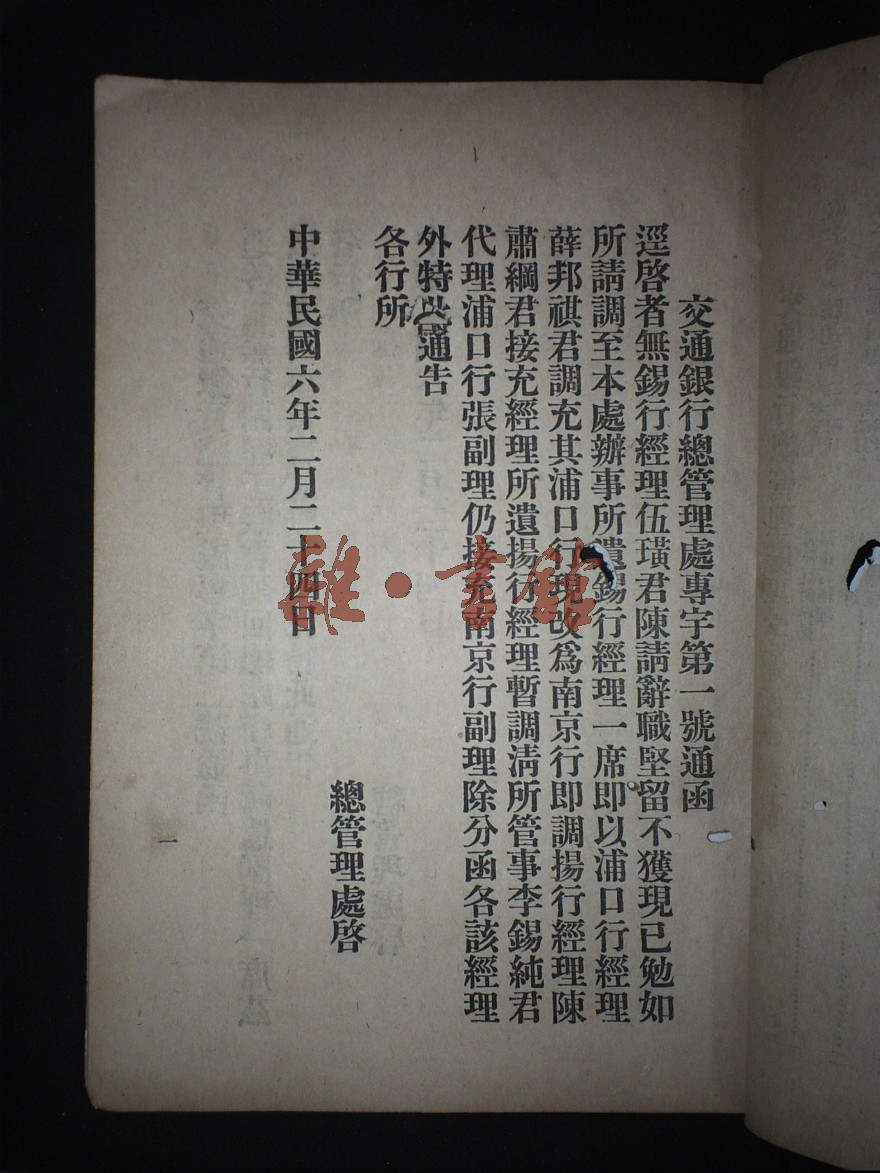 交通銀行總管理處專字第一號通函
逕啓者無錫行經理伍璜君陳請辭職堅留不獲現已勉如
所請調至本處辦事所遺錫行經理一席即以浦口行經理
薛邦祺君調充其浦口行現改爲南京行即調揚行經理陳
肅綱君接充經理所遺揚行經理暫調淸所管事李錫純君
代理浦口行張副理仍接充南京行副理除分函各該經理
外特此通告
各行所
總管理處啓
中華民國六年二月二十四日
一
雜·書館